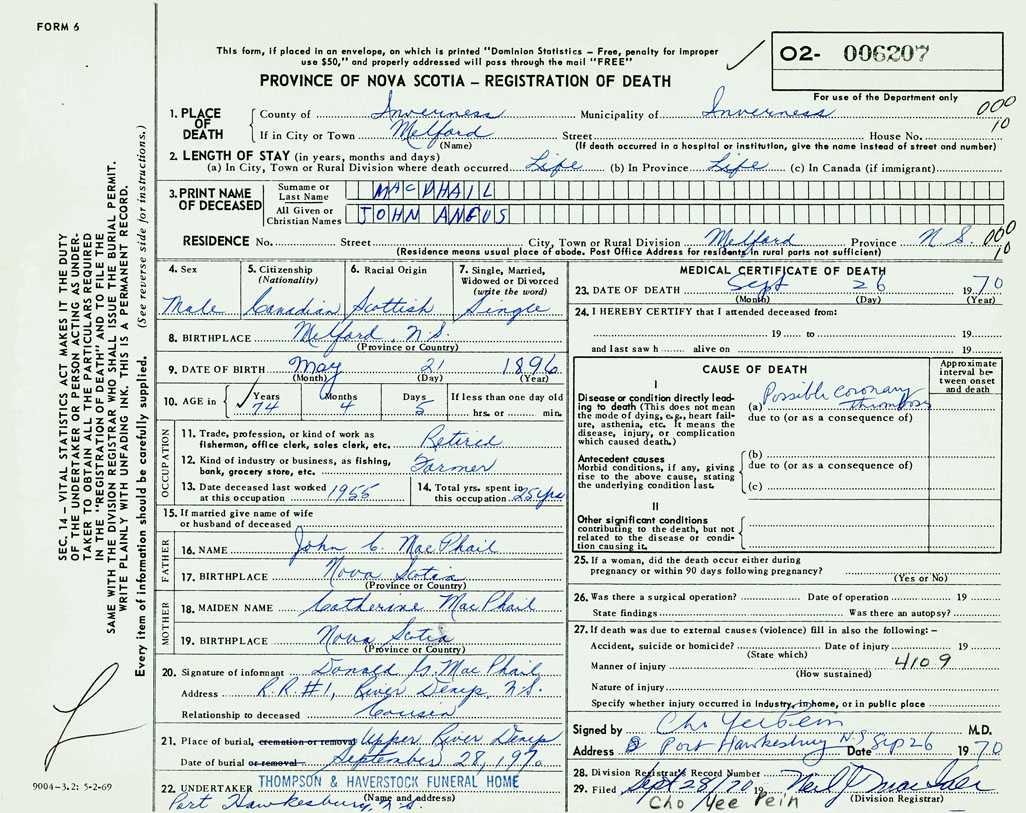 FORM 6
This form, if placed in an envelope, on which is printed "Dominion Statistics – Free, penalty for improper
use $50," and properly addressed will pass through the mail "FREE"
PROVINCE OF NOVA SCOTIA – REGISTRATION OF DEATH
02- 006207
For use of the Department only
1. PLACE OF DEATH
County of Inverness Municipality of Inverness 000
If in City or Town Melford Street House No. 10
(Name) (If death occurred in a hospital or institution, give the name instead of street and number)
2. LENGTH OF STAY (in years, months and days)
(a) In City, Town or Rural Division where death occurred Life (b) In Province Life (c) In Canada (if immigrant)
3. PRINT NAME OF DECEASED
Surname or Last Name MACPHAIL
All Given or Christian Names JOHN ANGUS
RESIDENCE No. Street City, Town or Rural Division Melford Province N S. 000
(Residence means usual place of abode. Post Office Address for residents in rural parts not sufficient) 10
4. Sex
Male
5. Citizenship
(Nationality)
Canadian
6. Racial Origin
Scottish
7. Single, Married,
Widowed or Divorced
(write the word)
Single
8. BIRTHPLACE Melford, N.S.
(Province or Country)
9. DATE OF BIRTH May 21 1896
(Month) (Day) (Year)
10. AGE in Years Months Days If less than one day old
74 4 5 hrs. or min.
OCCUPATION
11. Trade, profession, or kind of work as
fisherman, office clerk, sales clerk, etc. Retired
12. Kind of industry or business, as fishing,
bank, grocery store, etc. Farmer
13. Date deceased last worked
at this occupation 1955
14. Total yrs. spent in
this occupation 25 yrs
15. If married give name of wife
or husband of deceased
FATHER
16. NAME John C. MacPhail
17. BIRTHPLACE Nova Scotia
(Province or Country)
MOTHER
18. MAIDEN NAME Catherine MacPhail
19. BIRTHPLACE Nova Scotia
(Province or Country)
20. Signature of informant Donald G. MacPhail
Address R.R.#1, River Denys, N.S.
Relationship to deceased Cousin
21. Place of burial, cremation or removal Upper River Denys
Date of burial or removal September 28, 1970
22. UNDERTAKER THOMPSON & HAVERSTOCK FUNERAL HOME
(Name and address)
Port Hawkesbury, N.S.
MEDICAL CERTIFICATE OF DEATH
23. DATE OF DEATH Sept 26 1970
(Month) (Day) (Year)
24. I HEREBY CERTIFY that I attended deceased from:
19 to 19
and last saw h alive on 19
CAUSE OF DEATH
Approximate
interval be-
tween onset
and death
I
Disease or condition directly lead-
ing to death (This does not mean
the mode of dying, e.g., heart fail-
ure, asthenia, etc. It means the
disease, injury, or complication
which caused death.)
(a) Possible Coronary
thrombosis
due to (or as a consequence of)
Antecedent causes
Morbid conditions, if any, giving
rise to the above cause, stating
the underlying condition last.
(b)
due to (or as a consequence of)
(c)
II
Other significant conditions
contributing to the death, but not
related to the disease or condi-
tion causing it.
25. If a woman, did the death occur either during
pregnancy or within 90 days following pregnancy?
(Yes or No)
26. Was there a surgical operation? Date of operation 19
State findings Was there an autopsy?
27. If death was due to external causes (violence) fill in also the following: –
Accident, suicide or homicide? Date of injury 19
(State which)
Manner of injury 4109
(How sustained)
Nature of injury
Specify whether injury occurred in industry, in home, or in public place
Signed by Cho Yee Pein M.D.
Address Port Hawkesbury N.S Date Sep 26 1970
28. Division Registrar's Record Number
29. Filed Sept 28/70 19
(Division Registrar)
Cho Yee Pein
SEC. 14 – VITAL STATISTICS ACT MAKES IT THE DUTY
OF THE UNDERTAKER OR PERSON ACTING AS UNDER-
TAKER TO OBTAIN ALL THE PARTICULARS REQUIRED
IN THE "REGISTRATION OF DEATH" AND TO FILE THE
SAME WITH THE DIVISION REGISTRAR WHO SHALL ISSUE THE BURIAL PERMIT.
WRITE PLAINLY WITH UNFADING INK. THIS IS A PERMANENT RECORD.
Every item of information should be carefully supplied. (See reverse side for instructions.)
9004-3.2: 5-2-69